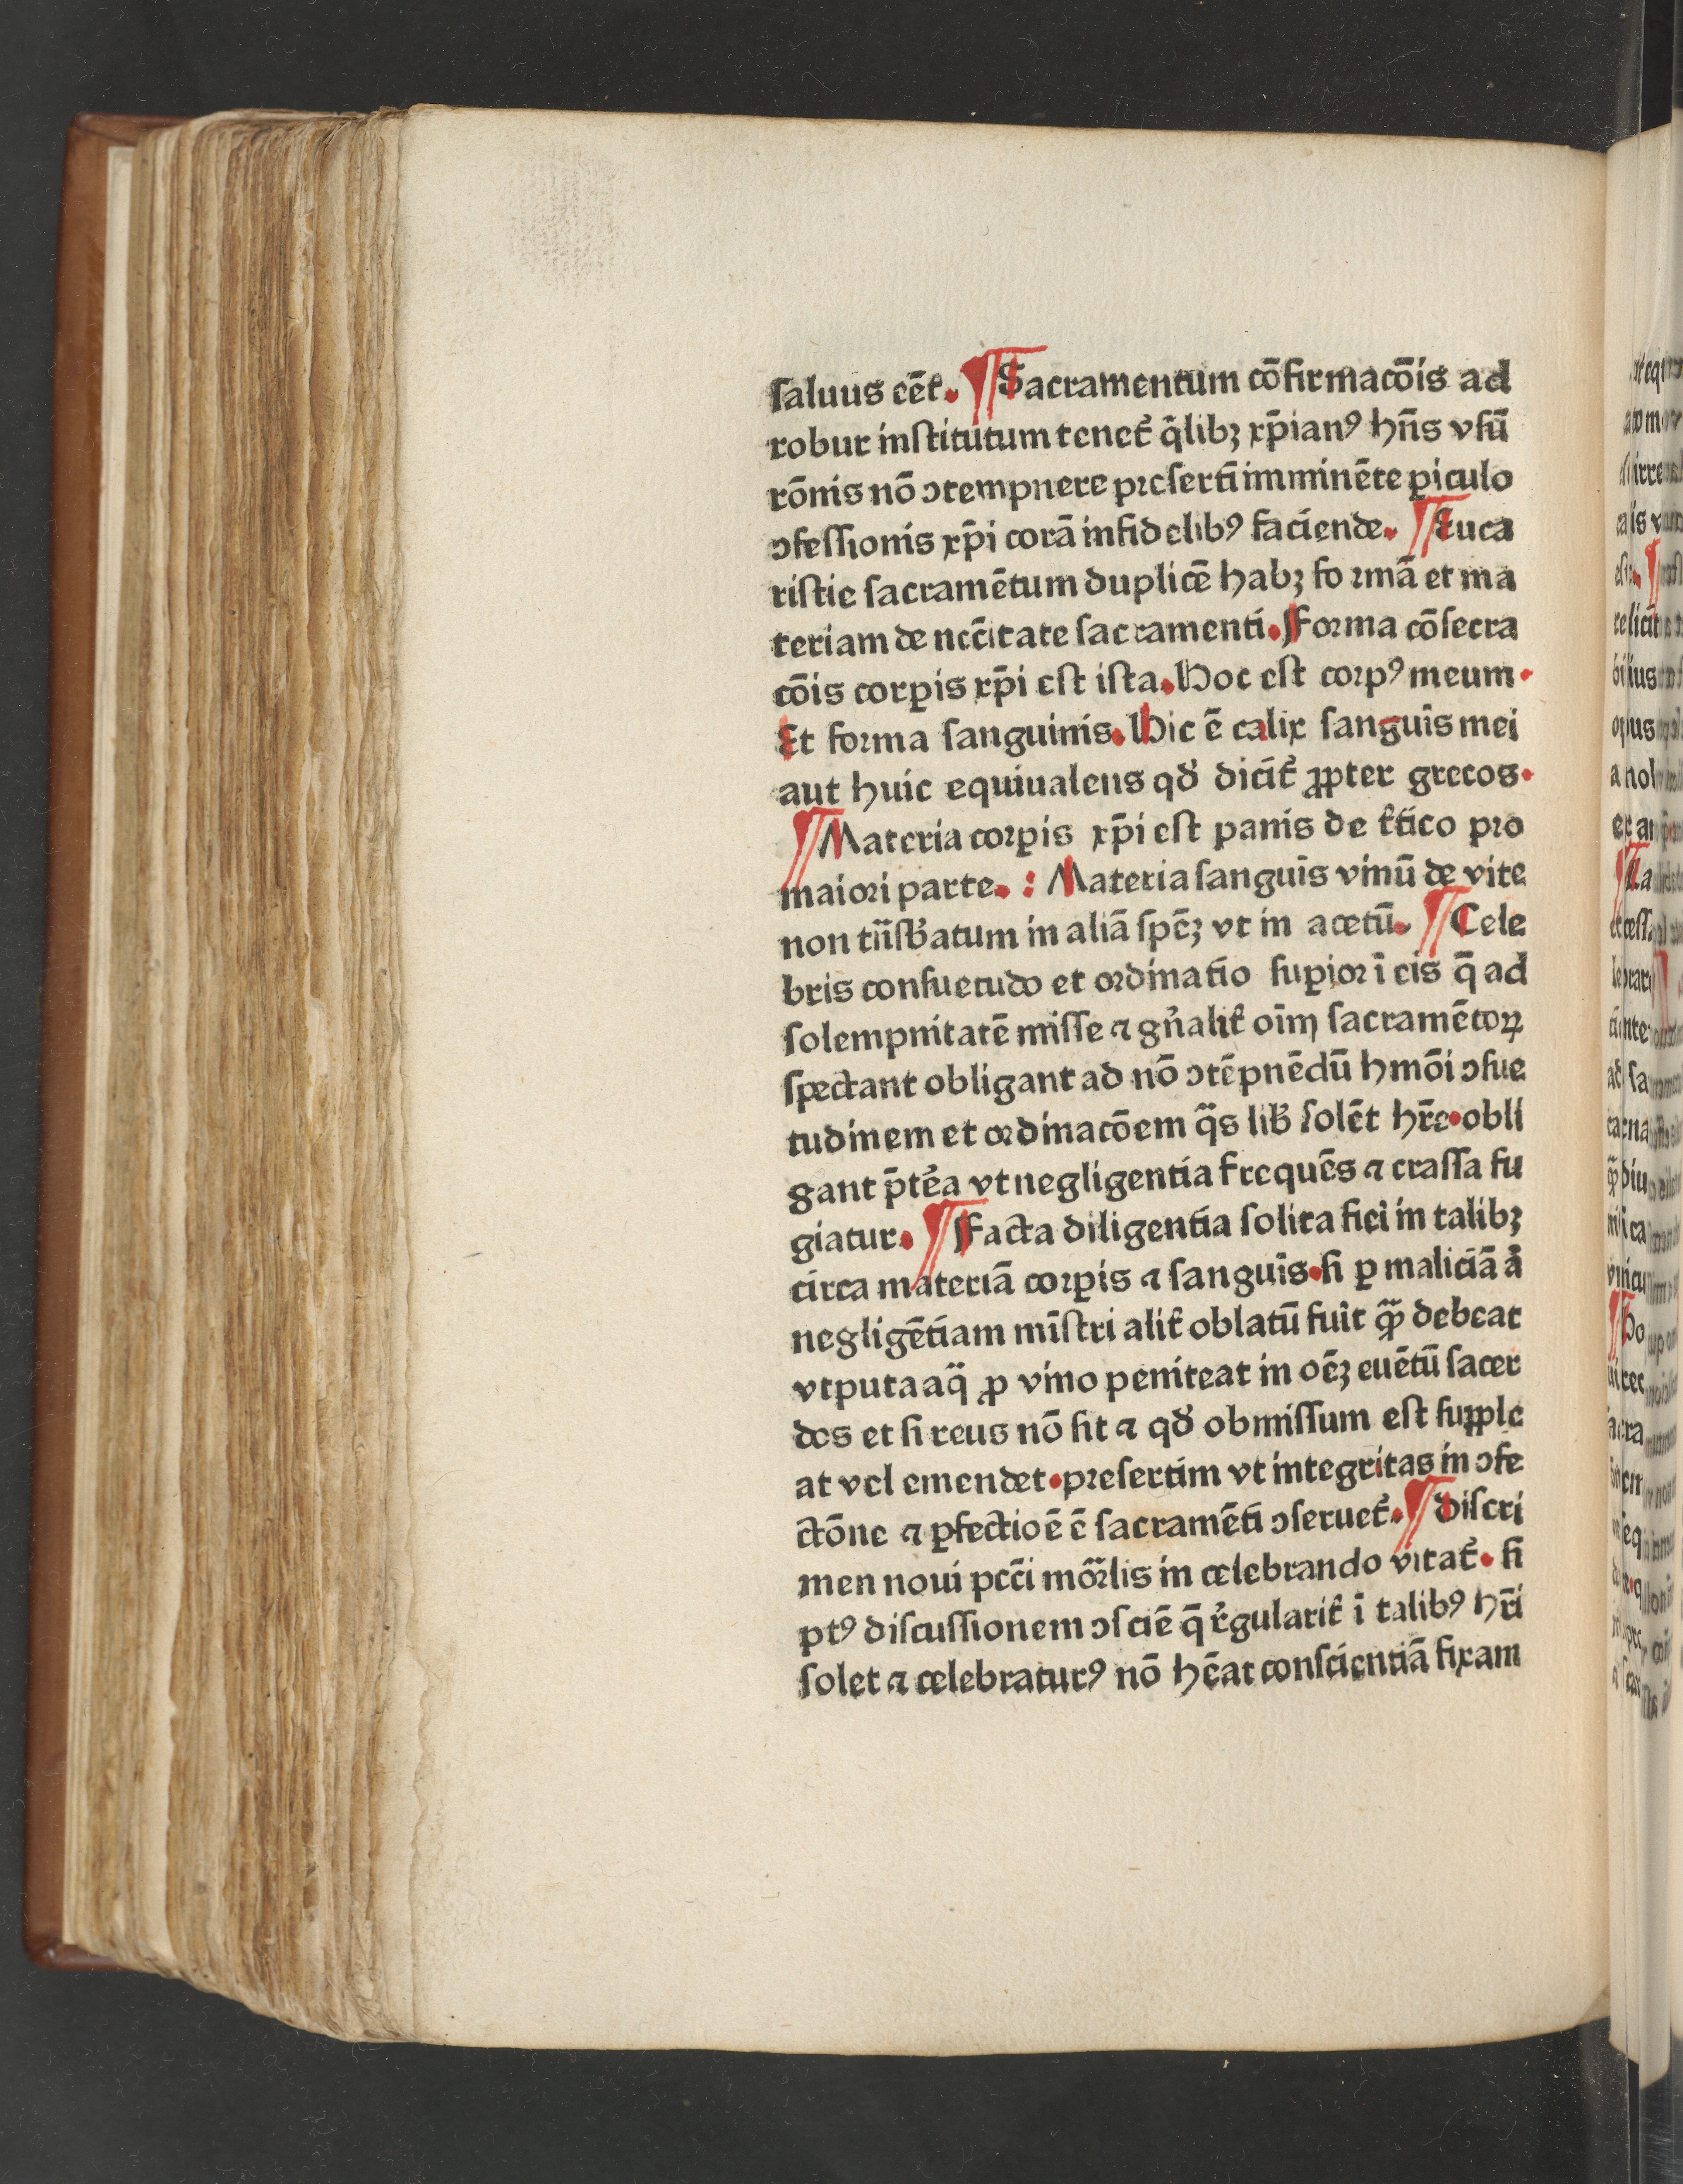 saluus eẽt̉. ¶ Sacramentum cõfirmacõis ad
robur institutum tenet̉ q̃libꝫ xp̃ianꝰ hñs vsũ
rõnis nõ ↄtempnere presertĩ imminẽte ꝑiculo
ↄfessionis xp̃i corã infidelibꝰ faciende. ¶ Euca
ristie sacramẽtum duplicẽ habꝫ formã et ma
teriam de ncc̃itate sacramenti. Forma cõsecra
cõis corꝑis xp̃i est ista. Hoc est corpꝰ meum.
Et forma sanguinis. Hic ẽ calix sanguĩs mei
aut huic equiualens qď dicit̉ ꝓpter grecos.
¶ Materia corꝑis xp̃i est panis de t̉tico pro
maiori parte. : Materia sanguĩs vinũ de vite
non tñsb̉atum in aliã spẽꝫ vt in acetũ. ¶ Cele
bris consuetudo et ordinatio suꝑior ĩ eis q̃ ad
solempnitatẽ misse ⁊ gñalit̉ oĩm sacramẽtoꝝ
spectant obligant ad nõ ↄtẽpnẽdũ hmõi ↄsue
tudinem et ordinacõem q̃s lib̉ solẽt hr̃e. obli
gant p̃tẽa vt negligentia frequẽs ⁊ crassa fu
giatur. ¶ Facta diligentia solita fieri in talibꝫ
circa materiã corꝑis ⁊ sanguĩs. si ꝑ maliciã å
negligẽtiam mĩstri alit̉ oblatũ fuit q̃ꝫ debeat
vtputa aq̃ ꝓ vino peniteat in oẽꝫ euẽtũ sacer
dos et si reus nõ sit ⁊ qď obmissum est supple
at vel emendet. presertim vt integritas in ↄfe
ctõne ⁊ ꝑfectioẽ ẽ sacramẽti ↄseruet̉. ¶ Discri
men noui pcc̃i mõrlis in celebrando vitat̉. si
ptꝰ discussionem ↄsciẽ q̃ r̉gularit̉ ĩ talibꝰ hr̃i
solet ⁊ celebraturꝰ nõ hẽat conscientiã fixam